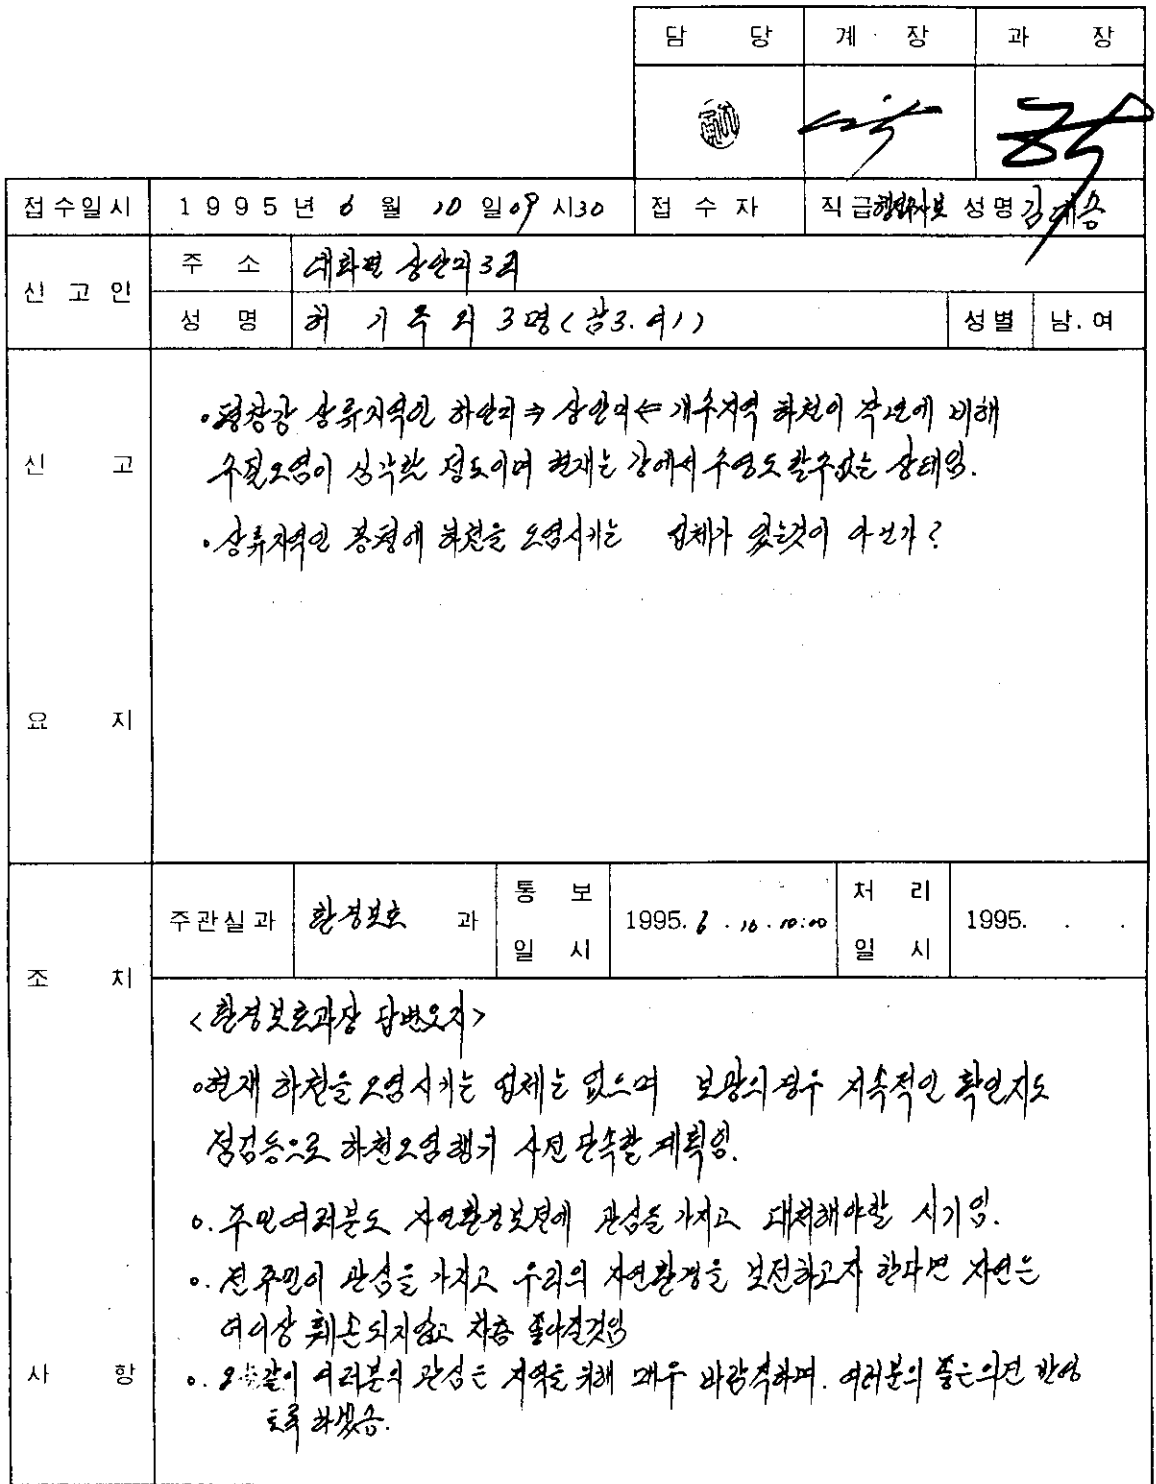 담 당 계 장 과 장
접수일시 1995년 6월 10일 09시30 접수자 직급 행정서보 성명 김
신고인 주소 대화면 상안미3리
성명 허기주외 3명(남3.여1) 성별 남.여
신고
요지
◦평창강 상류지역인 하안미⇒상안미⇐개수지역 하천이 작년에 비해
수질오염이 심각한 정도이며 현재는 강에서 수영도 할수없는 상태임.
◦상류지역인 봉평에 하천을 오염시키는 업체가 있는것이 아닌가?
조치
사항
주관실과 환경보호과 통보일시 1995. 6 . 10 . 10:00 처리일시 1995. . .
<환경보호과장 답변요지>
◦현재 하천을 오염시키는 업체는 없으며 보광의 경우 지속적인 확인지도
점검등으로 하천오염행위 사전 단속할 계획임.
◦. 주민여러분도 자연환경보전에 관심을 가지고 대처해야할 시기임.
◦. 전주민이 관심을 가지고 우리의 자연환경을 보전하고자 한다면 자연은
더이상 훼손되지않고 차츰 좋아질것임
◦. 같이 여러분의 관심은 지역을 위해 매우 바람직하며. 여러분의 좋은의견 반영
토록 하겠음.